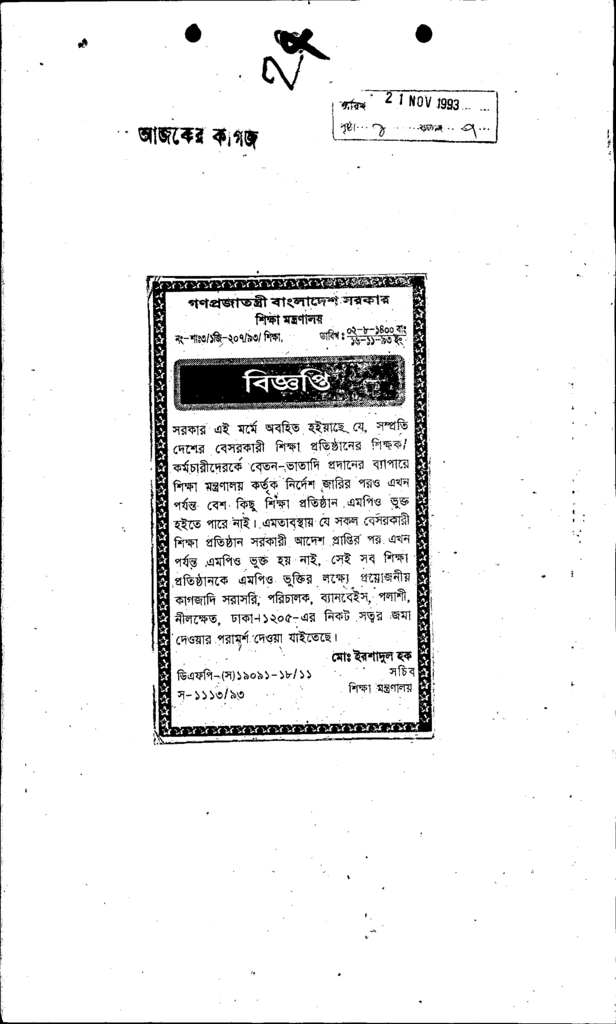 ২৫
তারিখ 21 NOV 1993
পৃষ্ঠা ... কলাম ...
আজকের কাগজ
গণপ্রজাতন্ত্রী বাংলাদেশ সরকার
শিক্ষা মন্ত্রণালয়
নং-শাঃ৩/১জি-২০৭/৯৩/ শিক্ষা, তারিখ : ০২-৮-১৪০০ বাং
১৬-১১-৯৩ ইং
বিজ্ঞপ্তি
সরকার এই মর্মে অবহিত হইয়াছে যে, সম্প্রতি
দেশের বেসরকারী শিক্ষা প্রতিষ্ঠানের শিক্ষক/
কর্মচারীদেরকে বেতন-ভাতাদি প্রদানের ব্যাপারে
শিক্ষা মন্ত্রণালয় কর্তৃক নির্দেশ জারির পরও এখন
পর্যন্ত বেশ কিছু শিক্ষা প্রতিষ্ঠান এমপিও ভুক্ত
হইতে পারে নাই। এমতাবস্থায় যে সকল বেসরকারী
শিক্ষা প্রতিষ্ঠান সরকারী আদেশ প্রাপ্তির পর এখন
পর্যন্ত এমপিও ভুক্ত হয় নাই, সেই সব শিক্ষা
প্রতিষ্ঠানকে এমপিও ভুক্তির লক্ষ্যে প্রয়োজনীয়
কাগজাদি সরাসরি, পরিচালক, ব্যানবেইস, পলাশী,
নীলক্ষেত, ঢাকা-১২০৫-এর নিকট সত্বর জমা
দেওয়ার পরামর্শ দেওয়া যাইতেছে।
মোঃ ইরশাদুল হক
ডিএফপি-(স)১৯০৯১-১৮/১১ সচিব
স-১১১৩/৯৩ শিক্ষা মন্ত্রণালয়